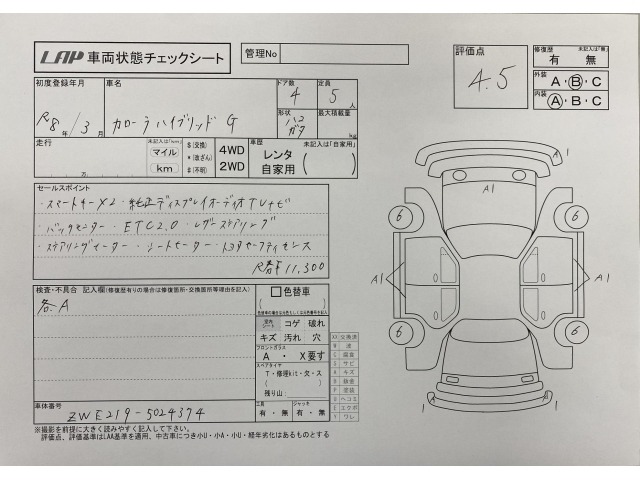 LAP 車両状態チェックシート
管理No
評価点
4.5
修復歴 未記入は「無」
有 無
外装 A・B・C
内装 A・B・C
初度登録年月
R8年/3月
車名
カローラハイブリッド G
ドア数
4
定員
5人
形状
ハコ
ガタ
最大積載量
kg
走行
未記入は「km」
マイル
km
万
$(交換)
*(改ざん)
#(不明)
4WD
2WD
車歴 未記入は「自家用」
レンタ
自家用
( )
セールスポイント
・スマートキーX2 ・純正ディスプレイオーディオTVナビ
・バックモニター ・ETC2.0 ・レザーステアリング
・ステアリングヒーター ・シートヒーター ・トヨタセーフティセンス
R券¥11,300
検査・不具合 記入欄(修復歴有りの場合は修復箇所・交換箇所等理由を記入)
各A
色替車
( )
室内
コゲ 破れ
キズ 汚れ 穴
フロントガラス
A ・ X要す
スペアタイヤ
T・修理kit・欠・ス
( )
残り山:
工具
有・無
ジャッキ
有・無
車体番号
ZWE219-5024374
※撮影を前提に大きく読みやすく記入して下さい。
評価点、評価基準はLAA基準を適用、中古車につき小U・小A・小U・経年劣化はあるものとする
XX 交換済
X 要
C 腐食
S サビ
A キズ
B 鈑金
P 塗装
U ヘコミ
E エクボ
Y ワレ
A1
A1
6
6
A1
A1
6
6
1
1